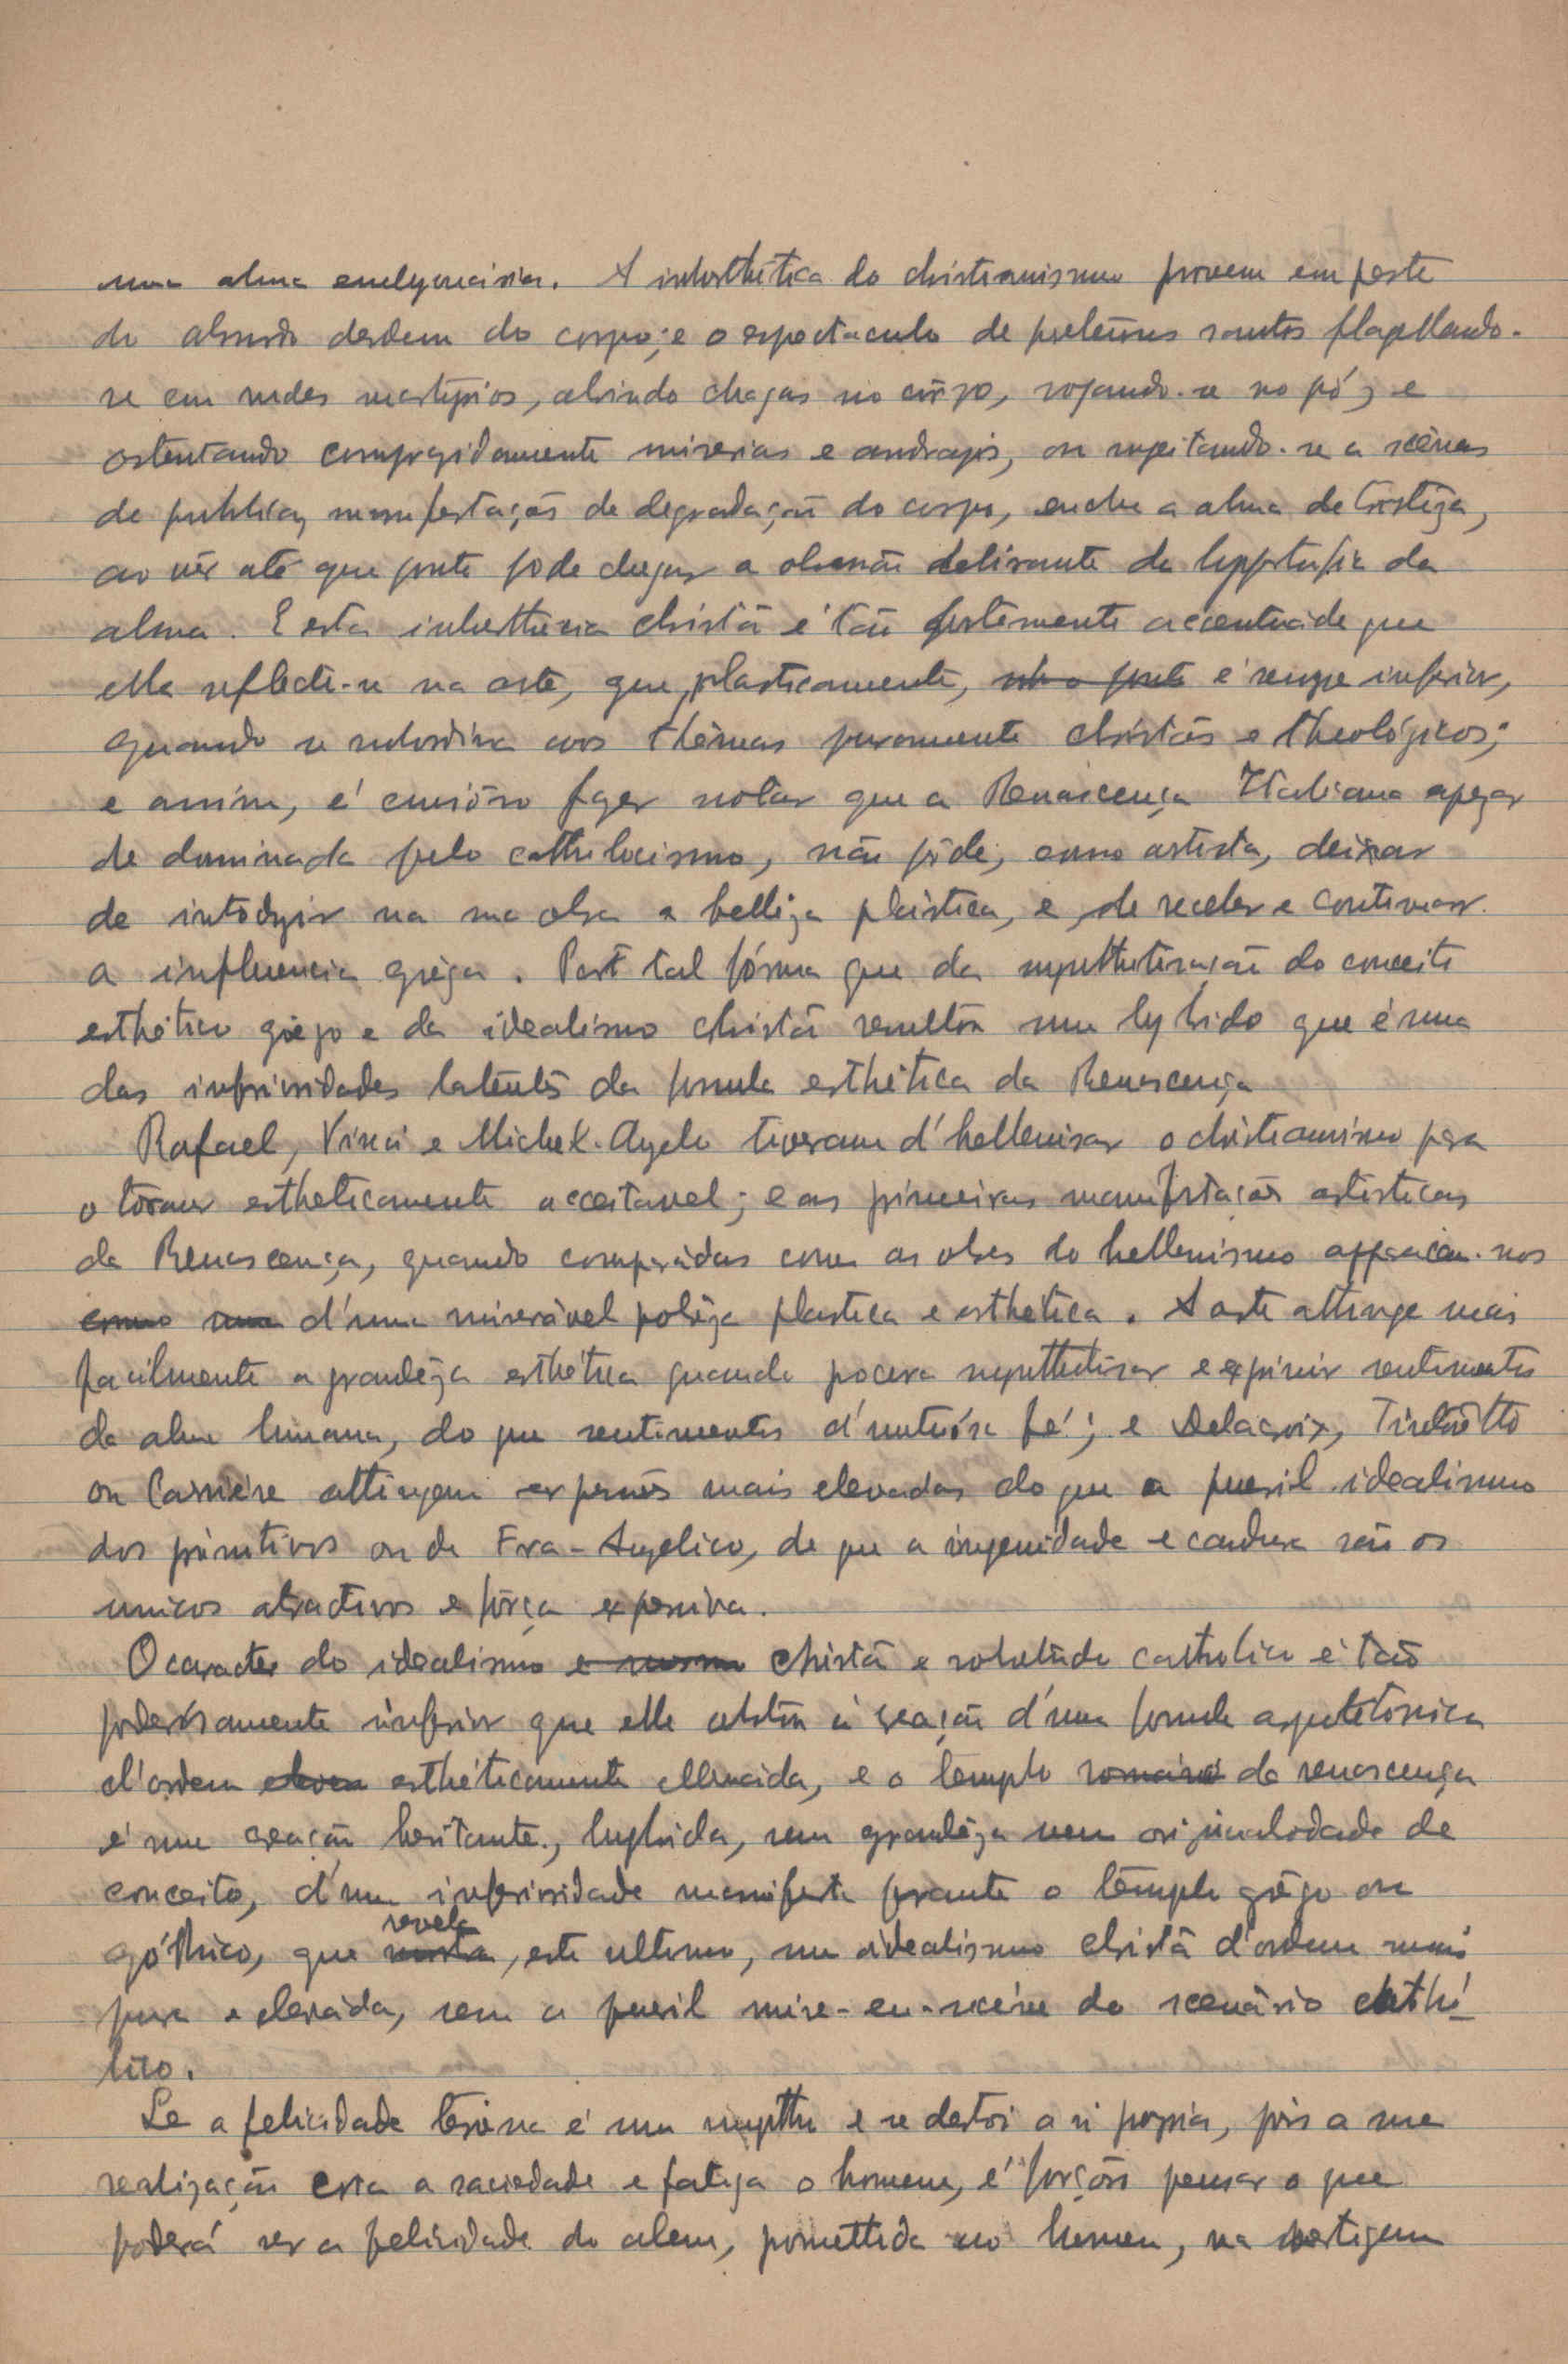 uma alma. A inesthética do christianismo provem em parte
do absurdo desdem do corpo; e o espectaculo de pretensos santos flagellando-
se em rudes martyrios, abrindo chagas no corpo, rojando-se no pó, e
ostentando miserias e andrajos, ou sujeitando-se a scênas
de publicas manifestações de degradação do corpo, enche a alma de tristêza,
ao vêr até que ponto pode chegar a obsessão delirante da da
alma. E esta christã é tão fortemente accentuada que
ella reflecte-se na arte, que, plasticamente, é sempre inferior,
quando se subordina aos thêmas puramente christãos e theológicos;
e assim, é curiôso fazer notar que a Renascença Italiana apezar
de dominada pelo catholicismo, não pôde, como artista, deixar
de introduzir na sua obra a bellêza plástica, e de receber e continuar
a influencia grêga. Por tal fórma que da do conceito
esthético grêgo e do idealismo christão resultou um hybrido que é uma
das inferioridades latentes da formula esthética da Renascença
Rafael, Vinci e Michel-Angelo tiveram d'hellenisar o christianismo para
o tornar estheticamente acceitavel; e as primeiras manifestações artisticas
da Renascença, quando comparadas com as obras do hellenismo apparecem-nos
como uma d'uma miserável pobrêza plastica e esthetica. A arte attinge mais
facilmente a grandêza esthética quando procura e exprimir sentimentos
da alma humana, do que sentimentos d' fé; e Delacroix, Tintorêtto
ou Carrière attingem expressões mais elevadas do que o pueril idealismo
dos primitivos ou de Fra-Angelico, de que a ingenuidade e candura são os
unicos atractivos e fôrça expressiva.
O caracter do idealismo christão e sobretudo catholico é tão
poderósamente inferior que elle obstou á creação d'uma formula arquitetónica
d'ordem esthéticamente, e o templo da renascença
é uma creação hesitante, hybrida, sem grandêza nem originalidade de
conceito, d'uma inferioridade manifesta perante o templo grêgo ou
góthico, que revela, este ultimo, um idealismo christão d'ordem mais
pura e elevada, sem a pueril mise-en-scène do scenário cathó-
lico.
Se a felicidade terrêna é um mytho e se destroi a si propria, pois a sua
realização cria a saciedade e fatiga o homem, é forçôso pensar o que
poderá ser a felicidade do alem, promettida ao homem, na vertigem